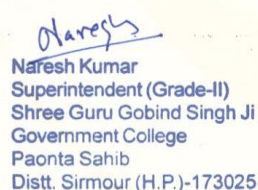 Naresh
Naresh Kumar
Superintendent (Grade-II)
Shree Guru Gobind Singh Ji
Government College
Paonta Sahib
Distt. Sirmour (H.P.)-173025